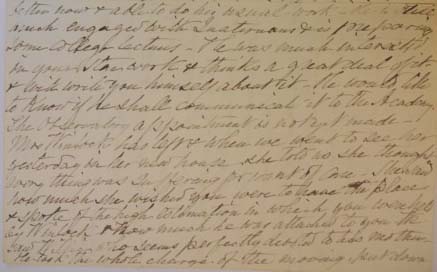 better now & able to do his usual work
much engaged with Quaternions & is preparing
some college lectures - He was much interested
in your Star work & thinks a great deal of it
& will write you himself about it - He would like
to know if he shall communicate it to the Academy
The Observatory appointment is not yet made -
Mrs Winlock has left & when we went to see her
yesterday in her new house she told us she thought
every thing was suffering for want of care - She said
how much she wished you were to have the place
& spoke of the high estimation in which you were held
by Mr Winlock & how much he was attached to you
who seems perfectly devoted to his mother
He took the whole charge of the moving